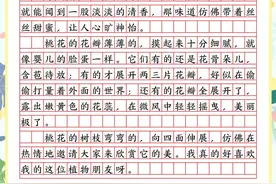 就能闻到一股淡淡的清香，那味道仿佛带着丝
丝甜蜜，让人心旷神怡。
桃花的花瓣薄薄的，摸起来十分细腻，就
像婴儿的脸蛋一样。它们有的还是花骨朵儿，
含苞待放；有的才展开两三片花瓣，好似在偷
偷打量着外面的世界；还有的花瓣全展开了，
露出嫩黄色的花蕊，在微风中轻轻摇曳，美丽
极了。
桃花的树枝弯弯的，向四面伸展，仿佛在
热情地邀请大家来欣赏它的美。我真的好喜欢
我的这位植物朋友呀。